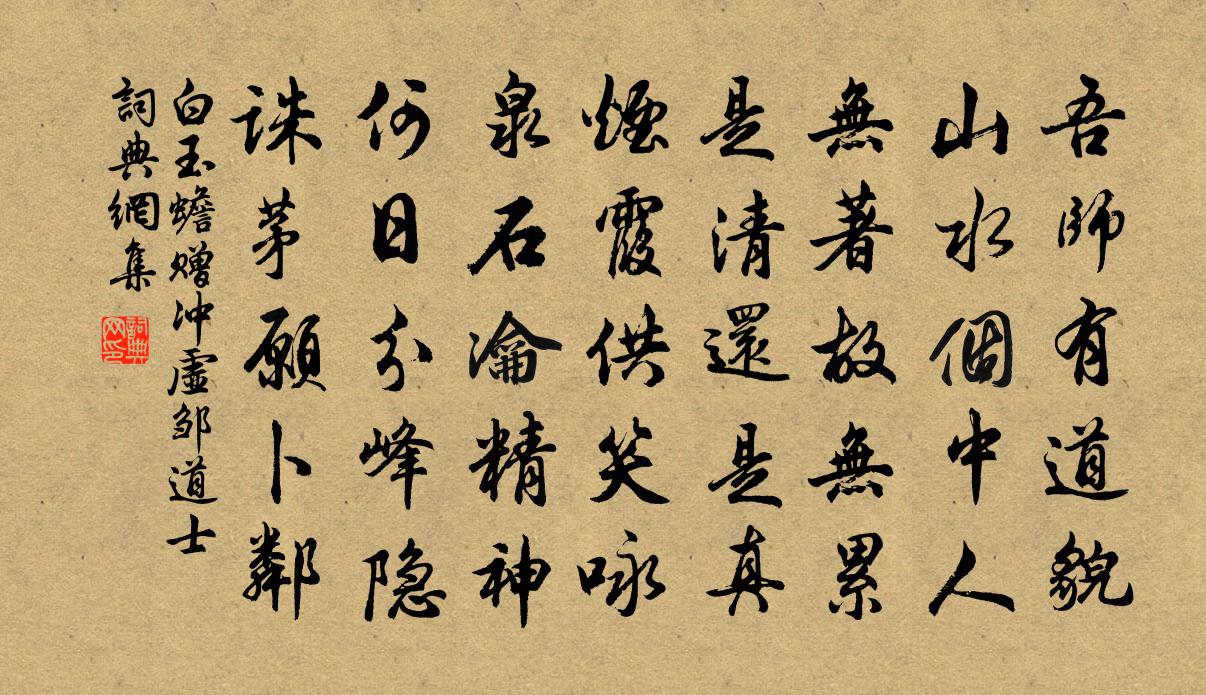 吾師有道貌
山水個中人
無著故無累
是清還是真
煙霞供笑咏
泉石瀹精神
何日分峰隐
誅茅願卜鄰
白玉蟾赠冲虛邹道士
詞典網集
詞典网印